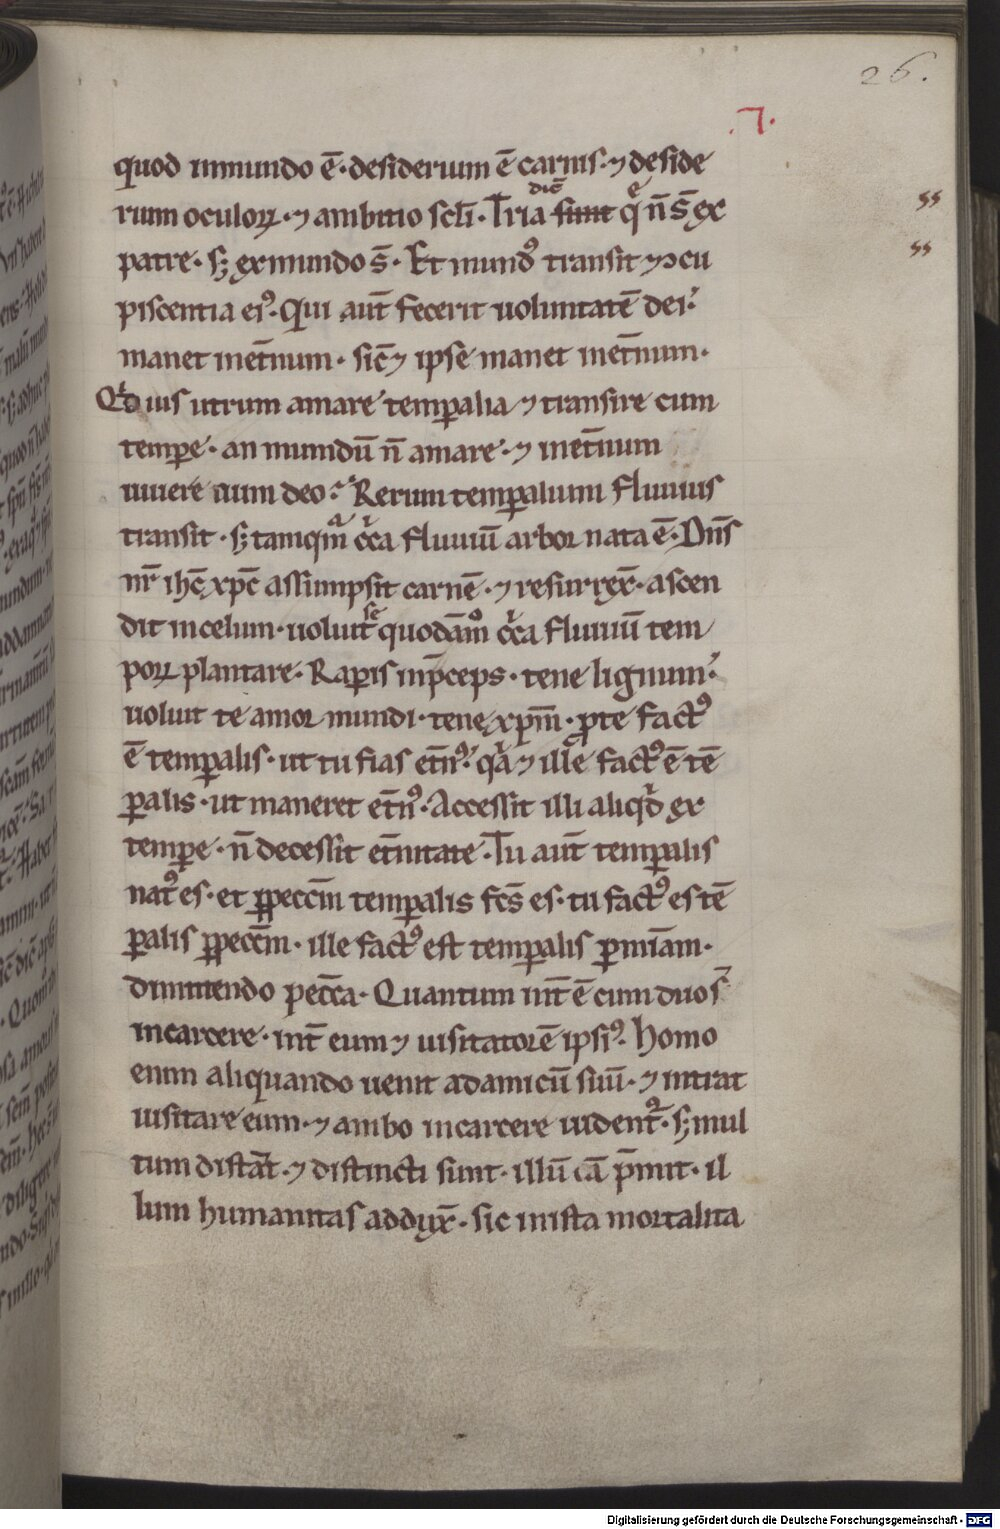 26.
.7.
quod inmundo ē· desiderium ē carnis· ⁊ deside
rium oculoꝝ· ⁊ ambitio scłi· Tria sunt dic̄ q̄ n̄ s̄ ex
patre· sꝫ ex mundo s̄· Et mundꝰ transit ⁊ ↄcu
piscentia eiꝰ· Qui aut̄ fecerit uoluntatē dei·
manet inet̄num· sic̄ ⁊ ipse manet inet̄num·
Qͥd uis utrum amare temꝑalia ⁊ transire cum
temꝑe· an mundū n̄ amare· ⁊ inet̄num
uiuere cum deo? Rerum temꝑalium fluuius
transit· sꝫ tamqͣm cͥca fluuiū arbor nata ē· Dn̄s
nr̄ ihc̄ xpc̄ assumpsit carnē· ⁊ resurrex̄· ascen
dit incelum· uoluit se quodām̊ cͥca fluuiū tem
poꝝ plantare· Raperis inp̄ceps· tene lignum·
uoluit te amor mundi· tene xpm̄· ꝓ te factꝰ
ē temꝑalis· ut tu fias et̄nꝰ· qͥa ⁊ ille factꝰ ē tē
ꝑalis· ut maneret et̄nꝰ· Accessit illi aliqͥd ex
temꝑe· n̄ decessit et̄nitate· Tu aut̄ temꝑalis
natꝰ es· et ꝑpeccm̄ temꝑalis fcs̄ es· tu factꝰ es tē
ꝑalis ꝑpecc̄m· ille factꝰ est temꝑalis ꝑ mīam·
dimittendo pecc̄a· Quantum int̄ ē cum duo s̄
incarcere· int̄ eum ⁊ uisitatorē ipsiꝰ· Homo
enim aliquando uenit adamicū suū· ⁊ intrat
uisitare eum· ⁊ ambo incarcere uident᷑· sꝫ mul
tum distāt· ⁊ distincti sunt· illū cā p̄mit· il
lum humanitas addux̄· sic inista mortalita
Digitalisierung gefördert durch die Deutsche Forschungsgemeinschaft - DFG